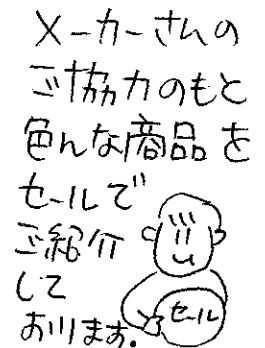 メーカーさんの
ご協力のもと
色んな商品を
セールで
ご紹介
して
おります.
セール